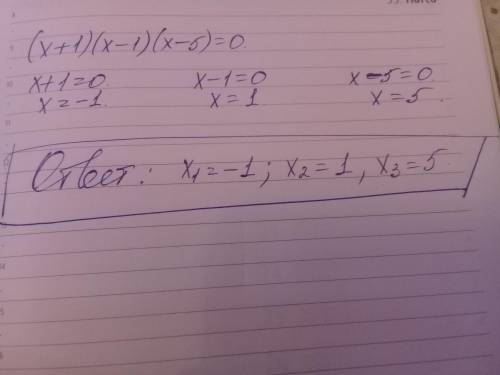 (x+1)(x-1)(x-5)=0
x+1=0 x-1=0 x-5=0
x=-1. x=1 x=5.
Ответ: x₁=-1; x₂=1, x₃=5